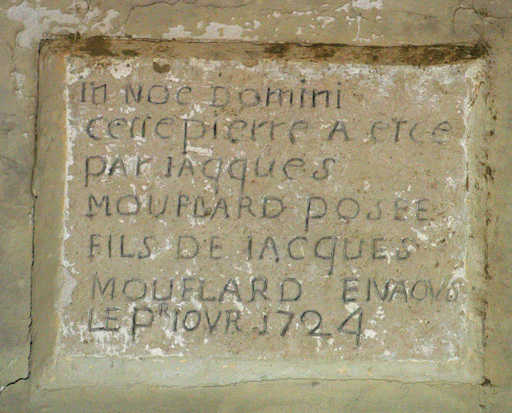 in noe Domini
cette pierre A etee
PAr iAqques
MOUFLARD POSEE
FILS DE IACQUES
MOUFLARD ENAOUS
LE PR IOVR 1724